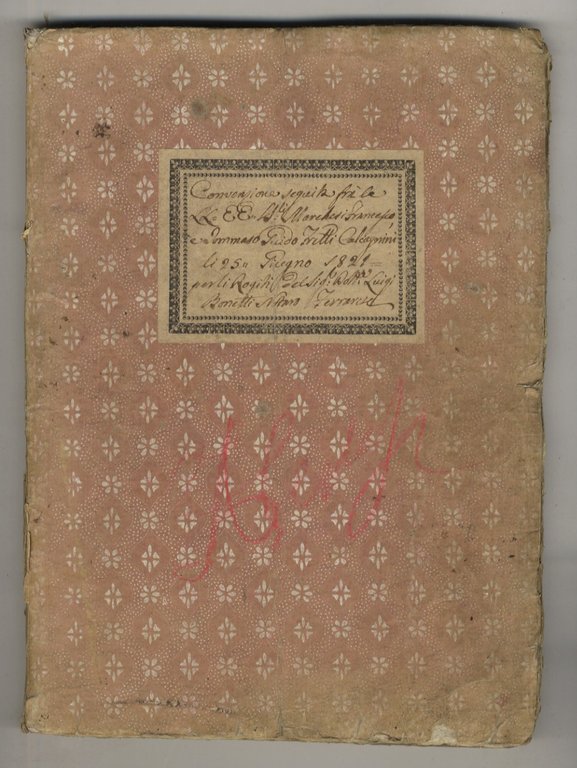 Convenzione seguita frà le
LL. EE. Marchesi Francesco,
e Tommaso Guido Frelli Calcagnini
li 25 Giugno 1821
per li Rogiti del Sig.r Dott.r Luigi
Bonetti Notaro Ferrarese